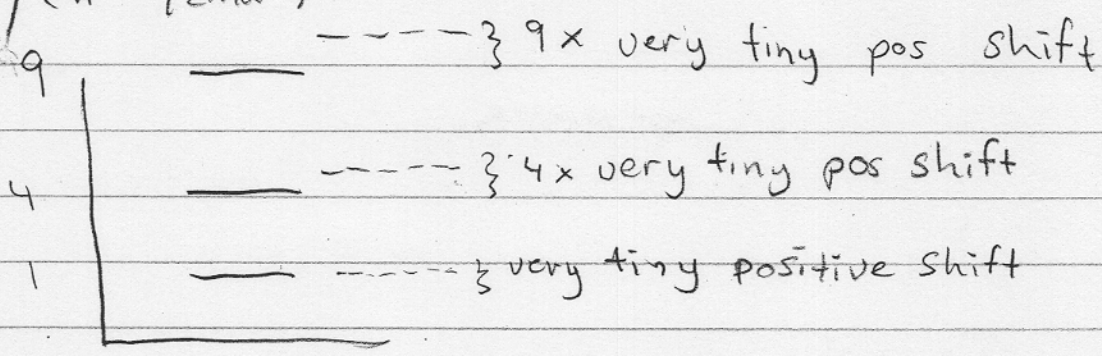 9 } 9 x very tiny pos shift
4 } 4 x very tiny pos shift
1 } very tiny positive shift